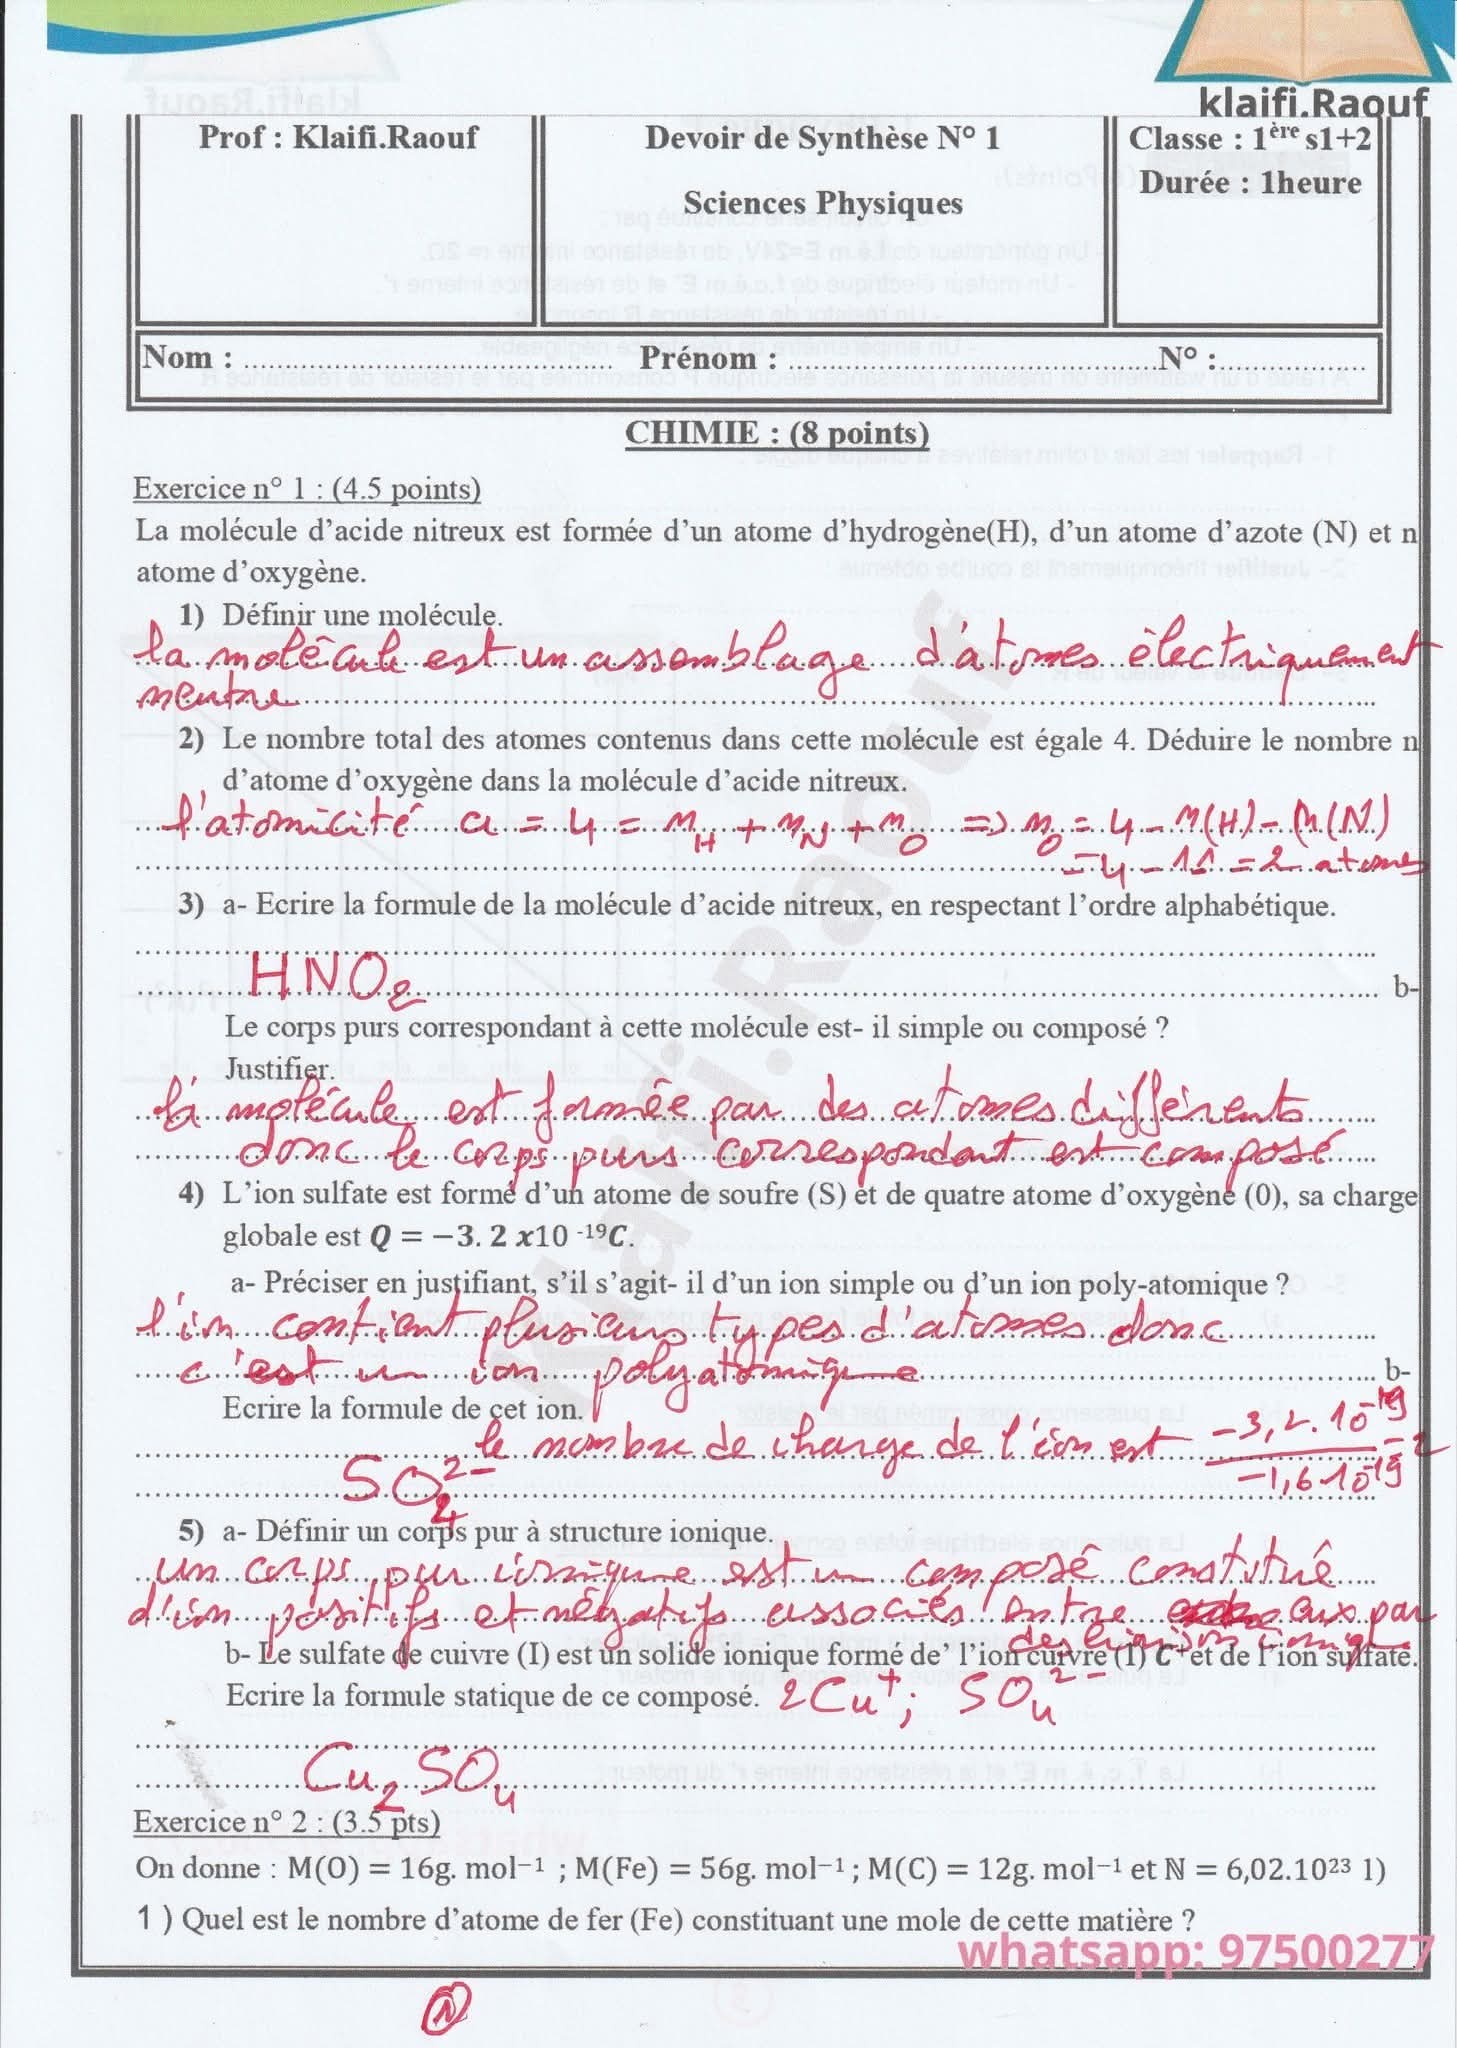 klaifi.Raouf
Prof : Klaifi.Raouf
Devoir de Synthèse N° 1
Sciences Physiques
Classe : 1ère s1+2
Durée : 1heure
Nom : ........................................ Prénom : ........................................ N° :................
CHIMIE : (8 points)
Exercice n° 1 : (4.5 points)
La molécule d'acide nitreux est formée d'un atome d'hydrogène(H), d'un atome d'azote (N) et n
atome d'oxygène.
1) Définir une molécule.
la molécule est un assemblage d'atomes électriquement
neutre
2) Le nombre total des atomes contenus dans cette molécule est égale 4. Déduire le nombre n
d'atome d'oxygène dans la molécule d'acide nitreux.
l'atomicité a = 4 = nH + nN + nO => nO = 4 - n(H) - n(N)
= 4 - 1 1 = 2 atomes
3) a- Ecrire la formule de la molécule d'acide nitreux, en respectant l'ordre alphabétique.
HNO2
b-
Le corps purs correspondant à cette molécule est- il simple ou composé ?
Justifier.
la molécule est formée par des atomes différents
donc le corps purs correspondant est composé
4) L'ion sulfate est formé d'un atome de soufre (S) et de quatre atome d'oxygène (0), sa charge
globale est Q = −3. 2 x10 -19C.
a- Préciser en justifiant, s'il s'agit- il d'un ion simple ou d'un ion poly-atomique ?
l'ion contient plusieurs types d'atomes donc
c'est un ion polyatomique
b-
Ecrire la formule de cet ion.
le nombre de charge de l'ion est -3,2.10-19 / -1,6 10-19 = 2
SO4 2-
5) a- Définir un corps pur à structure ionique.
un corps pur ionique est un composé constitué
d'ion positifs et négatifs associés entre eux par
des liaison ionique
b- Le sulfate de cuivre (I) est un solide ionique formé de' l'ion cuivre (I) C+et de l'ion sulfate.
Ecrire la formule statique de ce composé. 2Cu+ ; SO4 2-
Cu2SO4
Exercice n° 2 : (3.5 pts)
On donne : M(O) = 16g. mol−1 ; M(Fe) = 56g. mol−1 ; M(C) = 12g. mol−1 et ℕ = 6,02.1023 1)
1 ) Quel est le nombre d'atome de fer (Fe) constituant une mole de cette matière ?
whatsapp: 97500277
Klaifi.Raouf